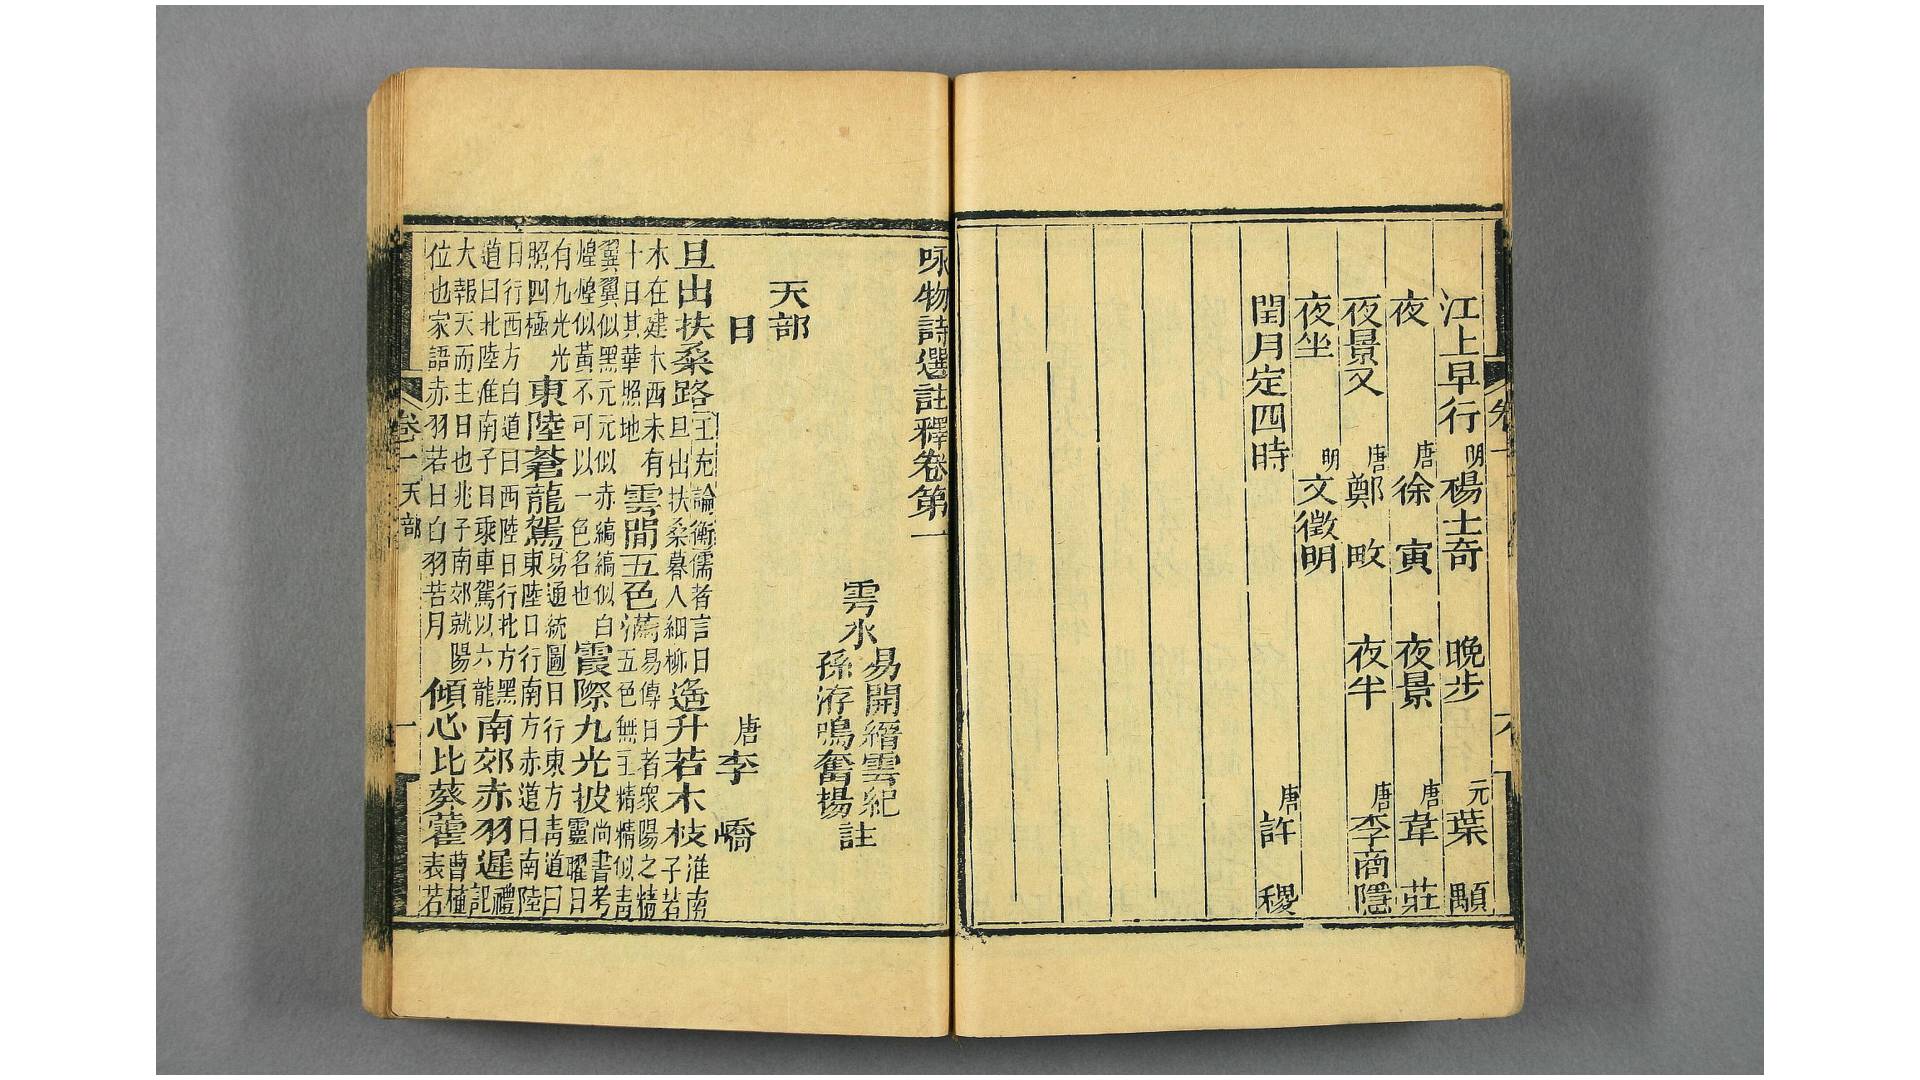 江上早行 明 楊士奇 晚步 元 葉顒
夜 唐 徐寅 夜景 唐 韋莊
夜景又 唐 鄭畋 夜半 唐 李商隱
夜坐 明 文徵明
閏月定四時 唐 許稷
咏物詩選註釋卷第一
雲水 易開縉雲紀 孫洊鳴奮揚 註
天部
日 唐 李嶠
旦出扶桑路 王充論衡儒者言日旦出扶桑暮入細柳 遙升若木枝 淮南子若
木在建木西末有十日其華照地 雲間五色滿 易傳日者衆陽之精五色無主精精似靑
翼翼似黑元元似赤縞縞似白煌煌似黃不可以一色名也 霞際九光披 尚書考靈曜日
有九光光照四極 東陸蒼龍駕 易通統圖日行東方靑道曰東陸日行南方赤道曰南陸
日行西方白道曰西陸日行北方黑道曰北陸淮南子曰乘車駕以六龍 南郊赤羽遲 禮記
大報天而主日也兆于南郊就陽位也家語赤羽若日白羽若月 傾心比葵藿 曹植表若
卷一 天部 一